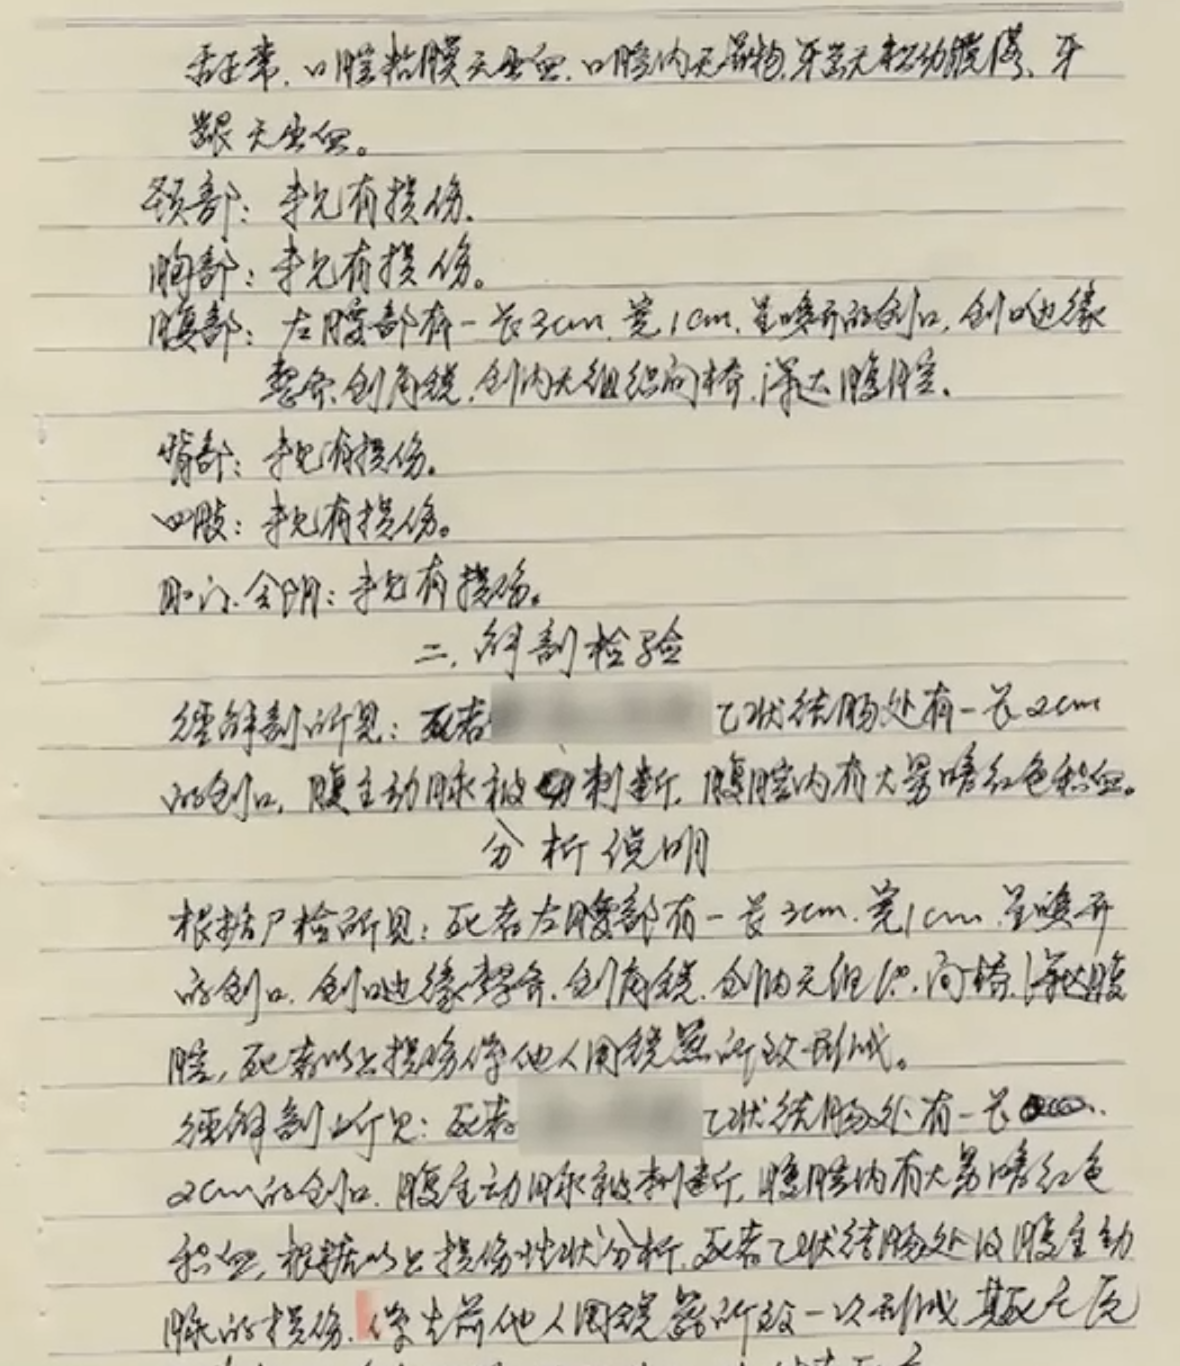 舌正常.口腔粘膜无出血.口腔内无异物.牙齿无松动脱落、牙
龈无出血。
颈部：未见有损伤.
胸部：未见有损伤。
腹部：左腹部有一长3cm.宽1cm.呈哆开的创口.创口边缘
整齐.创角锐.创内无组织间桥.深达腹腔.
背部：未见有损伤.
四肢：未见有损伤。
肛门.会阴：未见有损伤。
二.解剖检验
经解剖所见：死者 乙状结肠处有一长2cm
的创口.腹主动脉被刺断.腹腔内有大量暗红色积血。
分析说明
根据尸检所见：死者左腹部有一长3cm.宽1cm.呈哆开
的创口.创口边缘整齐.创角锐.创内无组织.间桥.深达腹
腔,死者以上损伤系他人用锐器所致形成。
经解剖所见：死者 乙状结肠处有一长
2cm的创口.腹主动脉被刺断.腹腔内有大量暗红色
积血,根据以上损伤性状分析.死者乙状结肠处及腹主动
脉的损伤.系生前他人用锐器所致一次形成.其死亡原